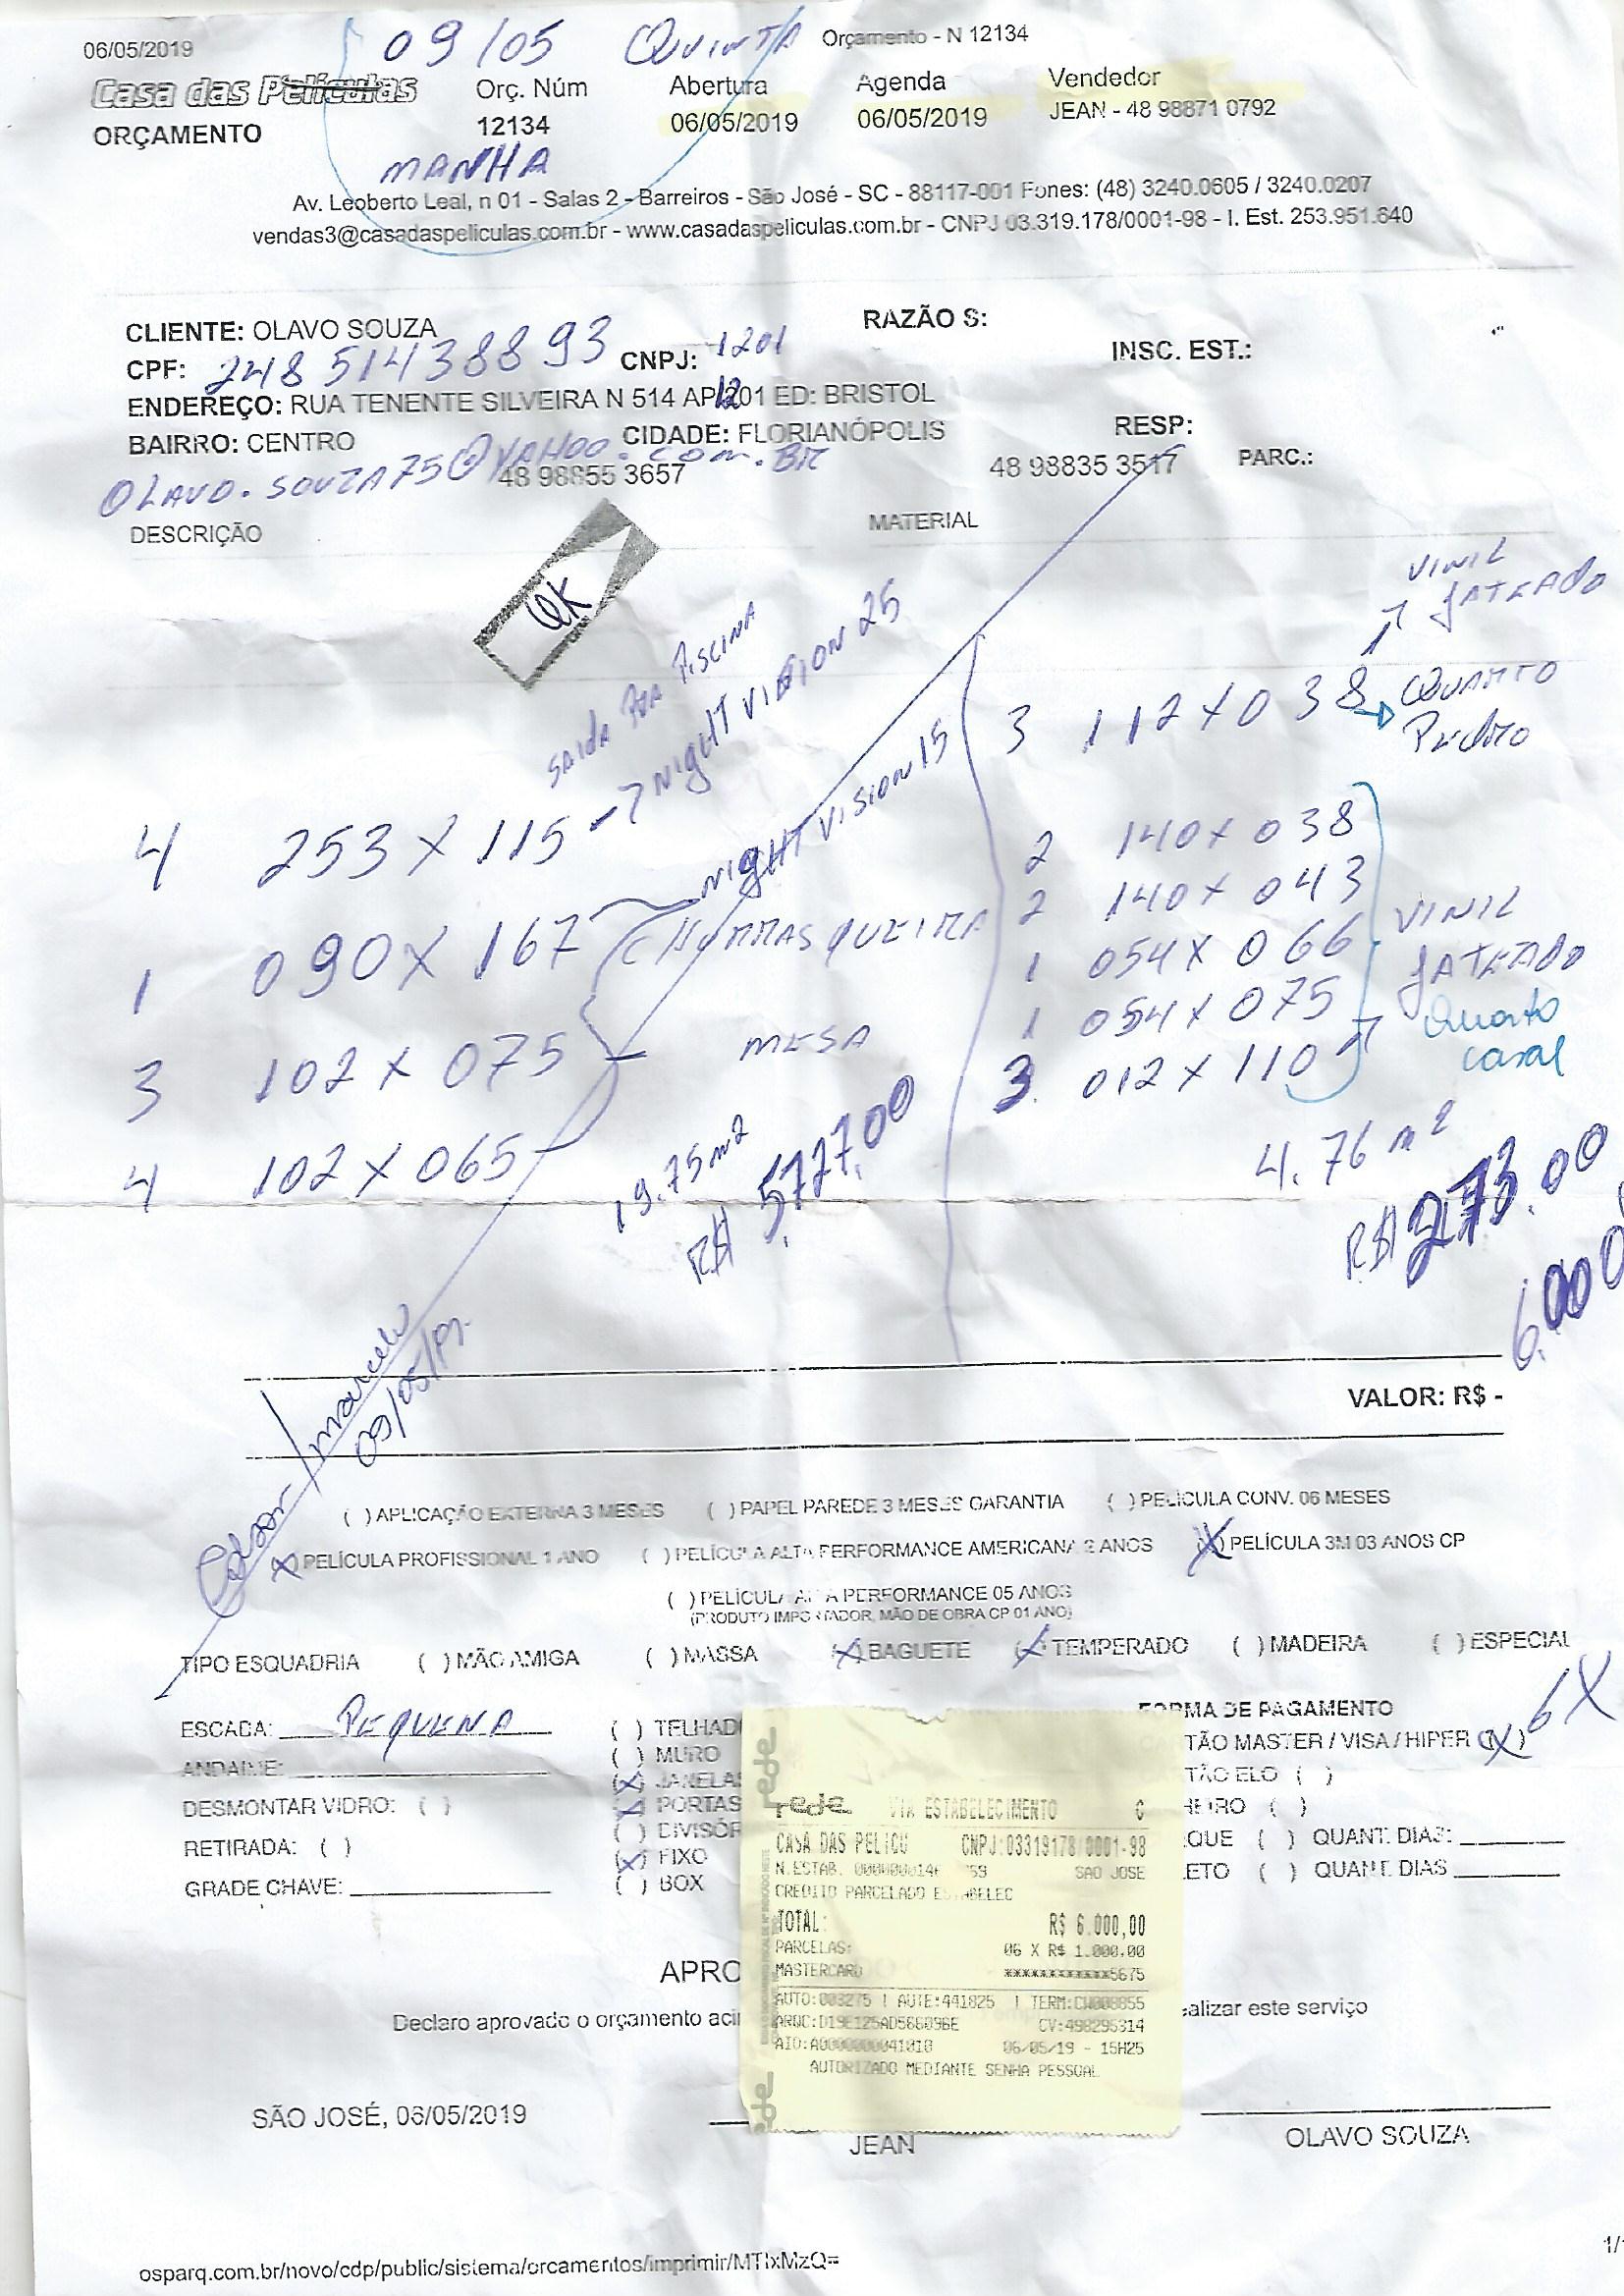 06/05/2019
09/05 QUINTA
Orçamento - N 12134
Casa das Películas
Orç. Núm
Abertura
Agenda
Vendedor
ORÇAMENTO
12134
06/05/2019
06/05/2019
JEAN - 48 98871 0792
MANHA
Av. Leoberto Leal, n 01 - Salas 2 - Barreiros - São José - SC - 88117-001 Fones: (48) 3240.0605 / 3240.0207
vendas3@casadaspeliculas.com.br - www.casadaspeliculas.com.br - CNPJ 03.319.178/0001-98 - I. Est. 253.951.640
CLIENTE: OLAVO SOUZA
RAZÃO S:
CPF: 248 514388 93
CNPJ:
1201
INSC. EST.:
ENDEREÇO: RUA TENENTE SILVEIRA N 514 AP 1201 ED: BRISTOL
BAIRRO: CENTRO
CIDADE: FLORIANÓPOLIS
RESP:
OLAVO.SOUZA75@YAHOO.COM.BR
48 98855 3657
48 98835 3517
PARC.:
DESCRIÇÃO
MATERIAL
OK
VINIL
JATEADO
SAIDA PRA PISCINA
3 112 X 038
QUARTO
PEDRO
4 253 X 115 NIGHT VISION 25
1 090 X 167 NIGHT VISION 15
CHURRASQUEIRA
3 102 X 075 MESA
4 102 X 065
2 140 X 038
2 140 X 043
1 054 X 066
1 054 X 075
3 012 X 110
VINIL
JATEADO
Quarto
casal
19.75 m2
R$ 5727,00
4.76 m2
R$ 273.00
6.000
marcelo
09/05/19
VALOR: R$ -
( ) APLICAÇÃO EXTERNA 3 MESES
( ) PAPEL PAREDE 3 MESES GARANTIA
( ) PELÍCULA CONV. 06 MESES
(X) PELÍCULA PROFISSIONAL 1 ANO
( ) PELÍCULA ALTA PERFORMANCE AMERICANA 2 ANOS
(X) PELÍCULA 3M 03 ANOS CP
( ) PELÍCULA ALTA PERFORMANCE 05 ANOS
(PRODUTO IMPORTADOR, MÃO DE OBRA CP 01 ANO)
TIPO ESQUADRIA
( ) MÃO AMIGA
( ) MASSA
(X) BAGUETE
(X) TEMPERADO
( ) MADEIRA
( ) ESPECIAL
ESCADA: PEQUENA
ANDAIME:
DESMONTAR VIDRO: ( )
RETIRADA: ( )
GRADE CHAVE:
( ) TELHAD
( ) MURO
(X) JANELAS
(X) PORTAS
( ) DIVISÓR
(X) FIXO
( ) BOX
FORMA DE PAGAMENTO
TÃO MASTER / VISA / HIPER (X) 6X
TÃO ELO ( )
HEIRO ( )
QUE ( ) QUANT. DIAS:
LETO ( ) QUANT. DIAS
rede
rede VIA ESTABELECIMENTO C
CASA DAS PELICU CNPJ:03319178/0001-98
N.ESTAB. SAO JOSE
CREDITO PARCELADO ESTABELEC
TOTAL: R$ 6.000,00
PARCELAS: 06 X R$ 1.000,00
MASTERCARD ************5675
AUTO:003275 | AUTE:441825 | TERM:CW008855
ARQC:D19E125AD566096E CV:498295314
AID:A0000000041010 06/05/19 - 15H25
AUTORIZADO MEDIANTE SENHA PESSOAL
APRO
Declaro aprovado o orçamento aci
ealizar este serviço
SÃO JOSÉ, 06/05/2019
JEAN
OLAVO SOUZA
osparq.com.br/novo/cdp/public/sistema/orcamentos/imprimir/MTIxMzQ=
1/